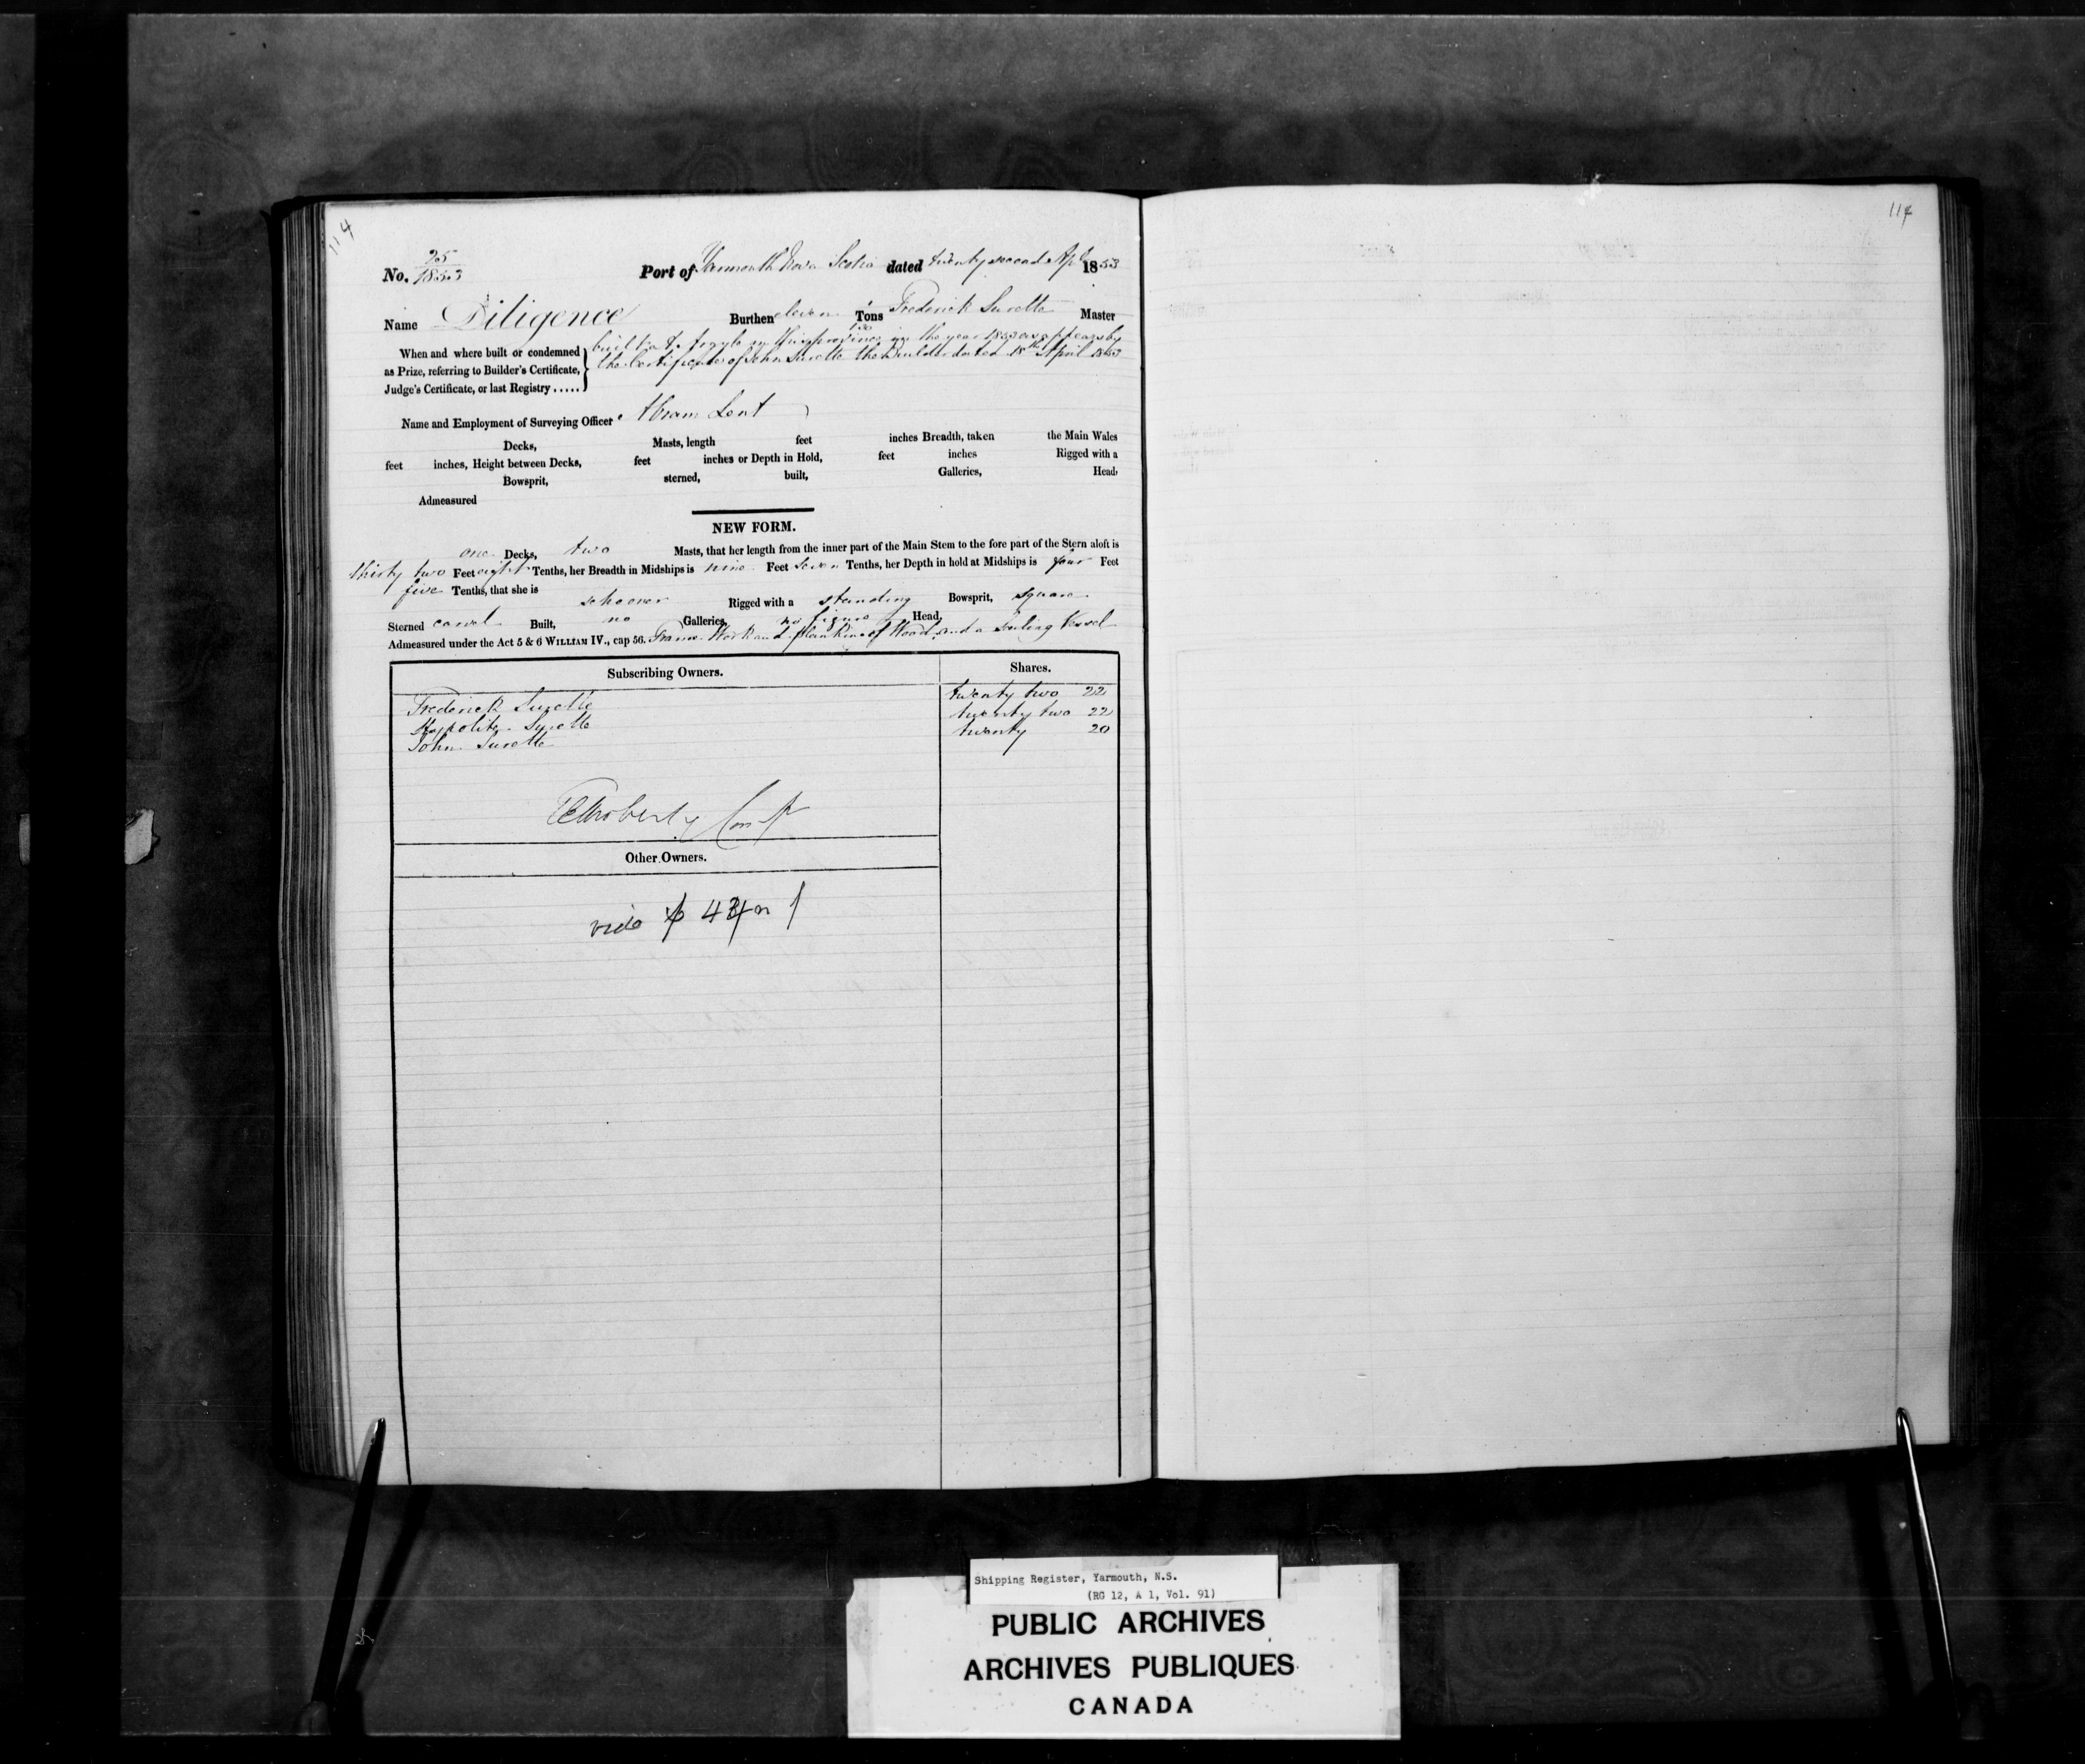 114
114
No. 25/1853 Port of Yarmouth Nova Scotia dated twenty second Apl 1853
Name Diligence Burthen eleven Tons Frederick Surette Master
When and where built or condemned as Prize, referring to Builder's Certificate, Judge's Certificate, or last Registry .....
built at Argyle in this province in the year 1853 as appears by
the Certificate of John Surette the Builder dated 18th April 1853
Name and Employment of Surveying Officer Abram Lent
Decks, Masts, length feet inches Breadth, taken the Main Wales
feet inches, Height between Decks, feet inches or Depth in Hold, feet inches Rigged with a
Bowsprit, sterned, built, Galleries, Head,
Admeasured
NEW FORM.
one Decks, two Masts, that her length from the inner part of the Main Stem to the fore part of the Stern aloft is
thirty two Feet eight Tenths, her Breadth in Midships is nine Feet seven Tenths, her Depth in hold at Midships is four Feet
five Tenths, that she is schooner Rigged with a standing Bowsprit, square
Sterned carvel Built, no Galleries, no figure Head,
Admeasured under the Act 5 & 6 WILLIAM IV., cap 56. Frame Work and planking of Wood and a Sailing Vessel
Subscribing Owners. Shares.
Frederick Surette twenty two 22
Hypolite Surette twenty two 22
John Surette twenty 20
Other Owners.
vide
Shipping Register, Yarmouth, N.S.
(RG 12, A 1, Vol. 91)
PUBLIC ARCHIVES
ARCHIVES PUBLIQUES
CANADA